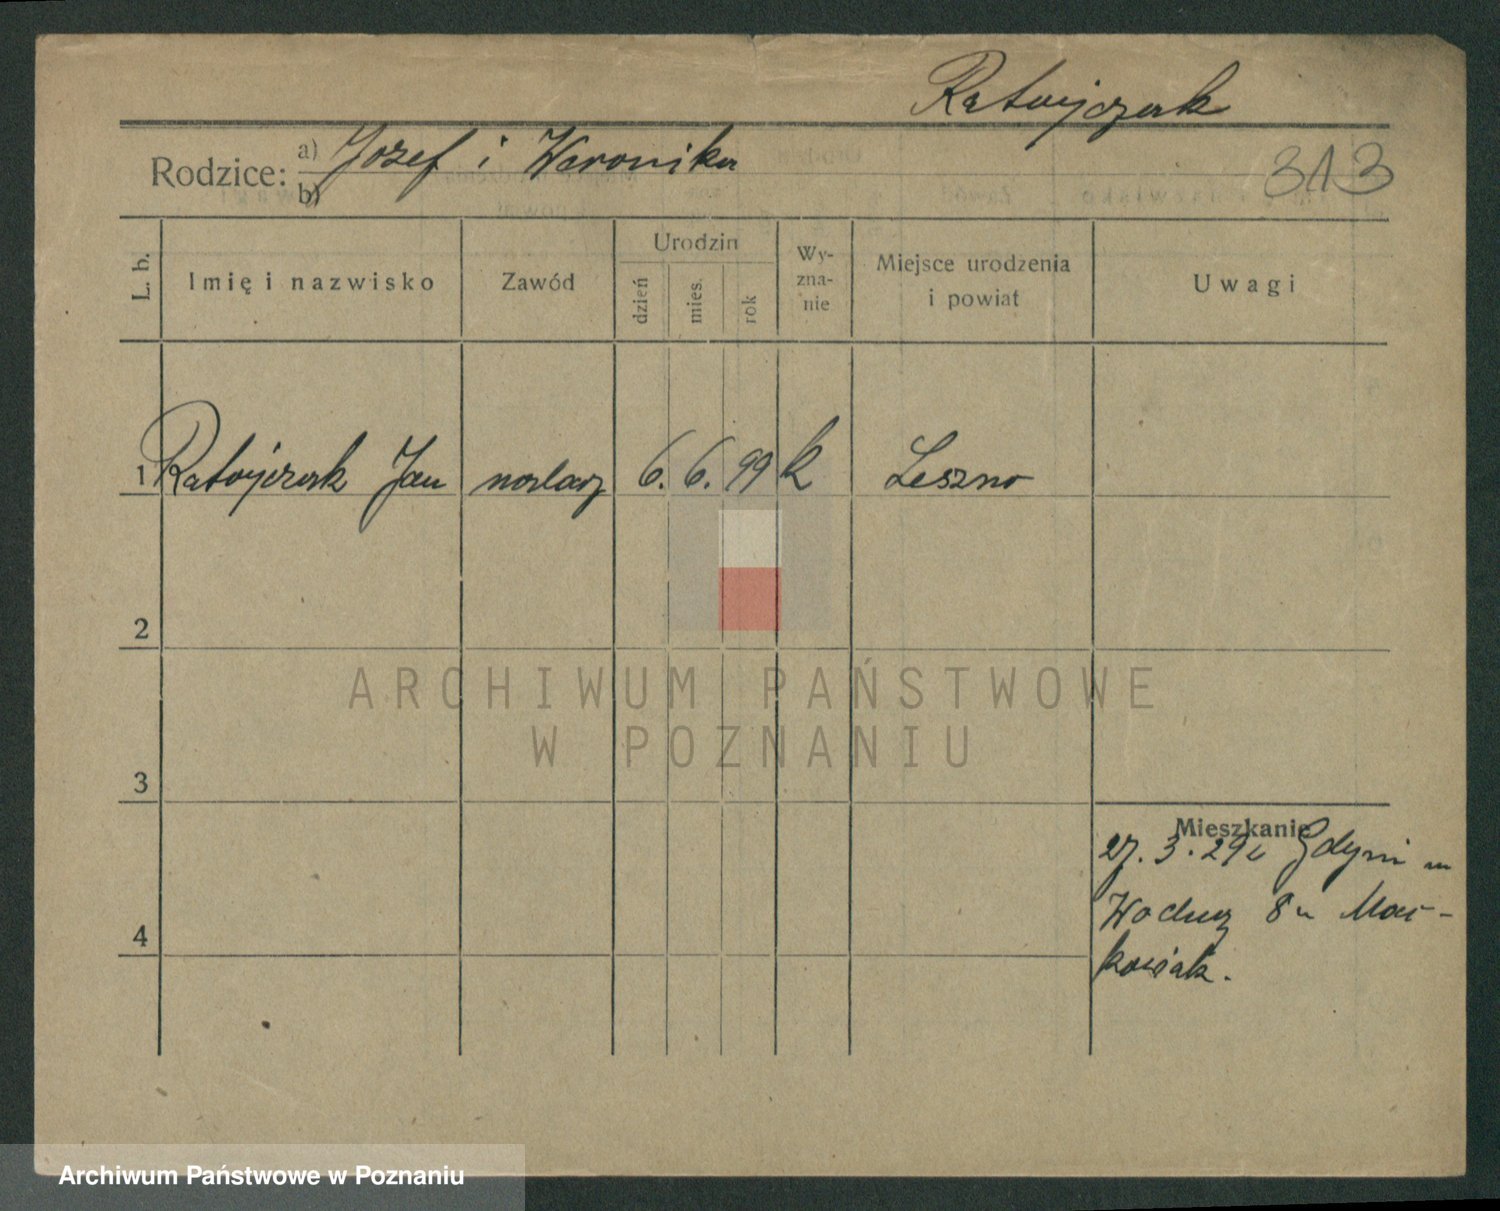 Ratajczak
Rodzice: a) Jozef i Weronika
b)
313
L. b.
Imię i nazwisko
Zawód
Urodzin
dzień
mies.
rok
Wy-
zna-
nie
Miejsce urodzenia
i powiat
Uwagi
1 Ratajczak Jan 6. 6. 99 k Leszno
2
3
4
Mieszkanie
27. 3. 29 Gdyni
Wodna 8 u Mar-
kowiak.
ARCHIWUM PAŃSTWOWE
W POZNANIU
Archiwum Państwowe w Poznaniu